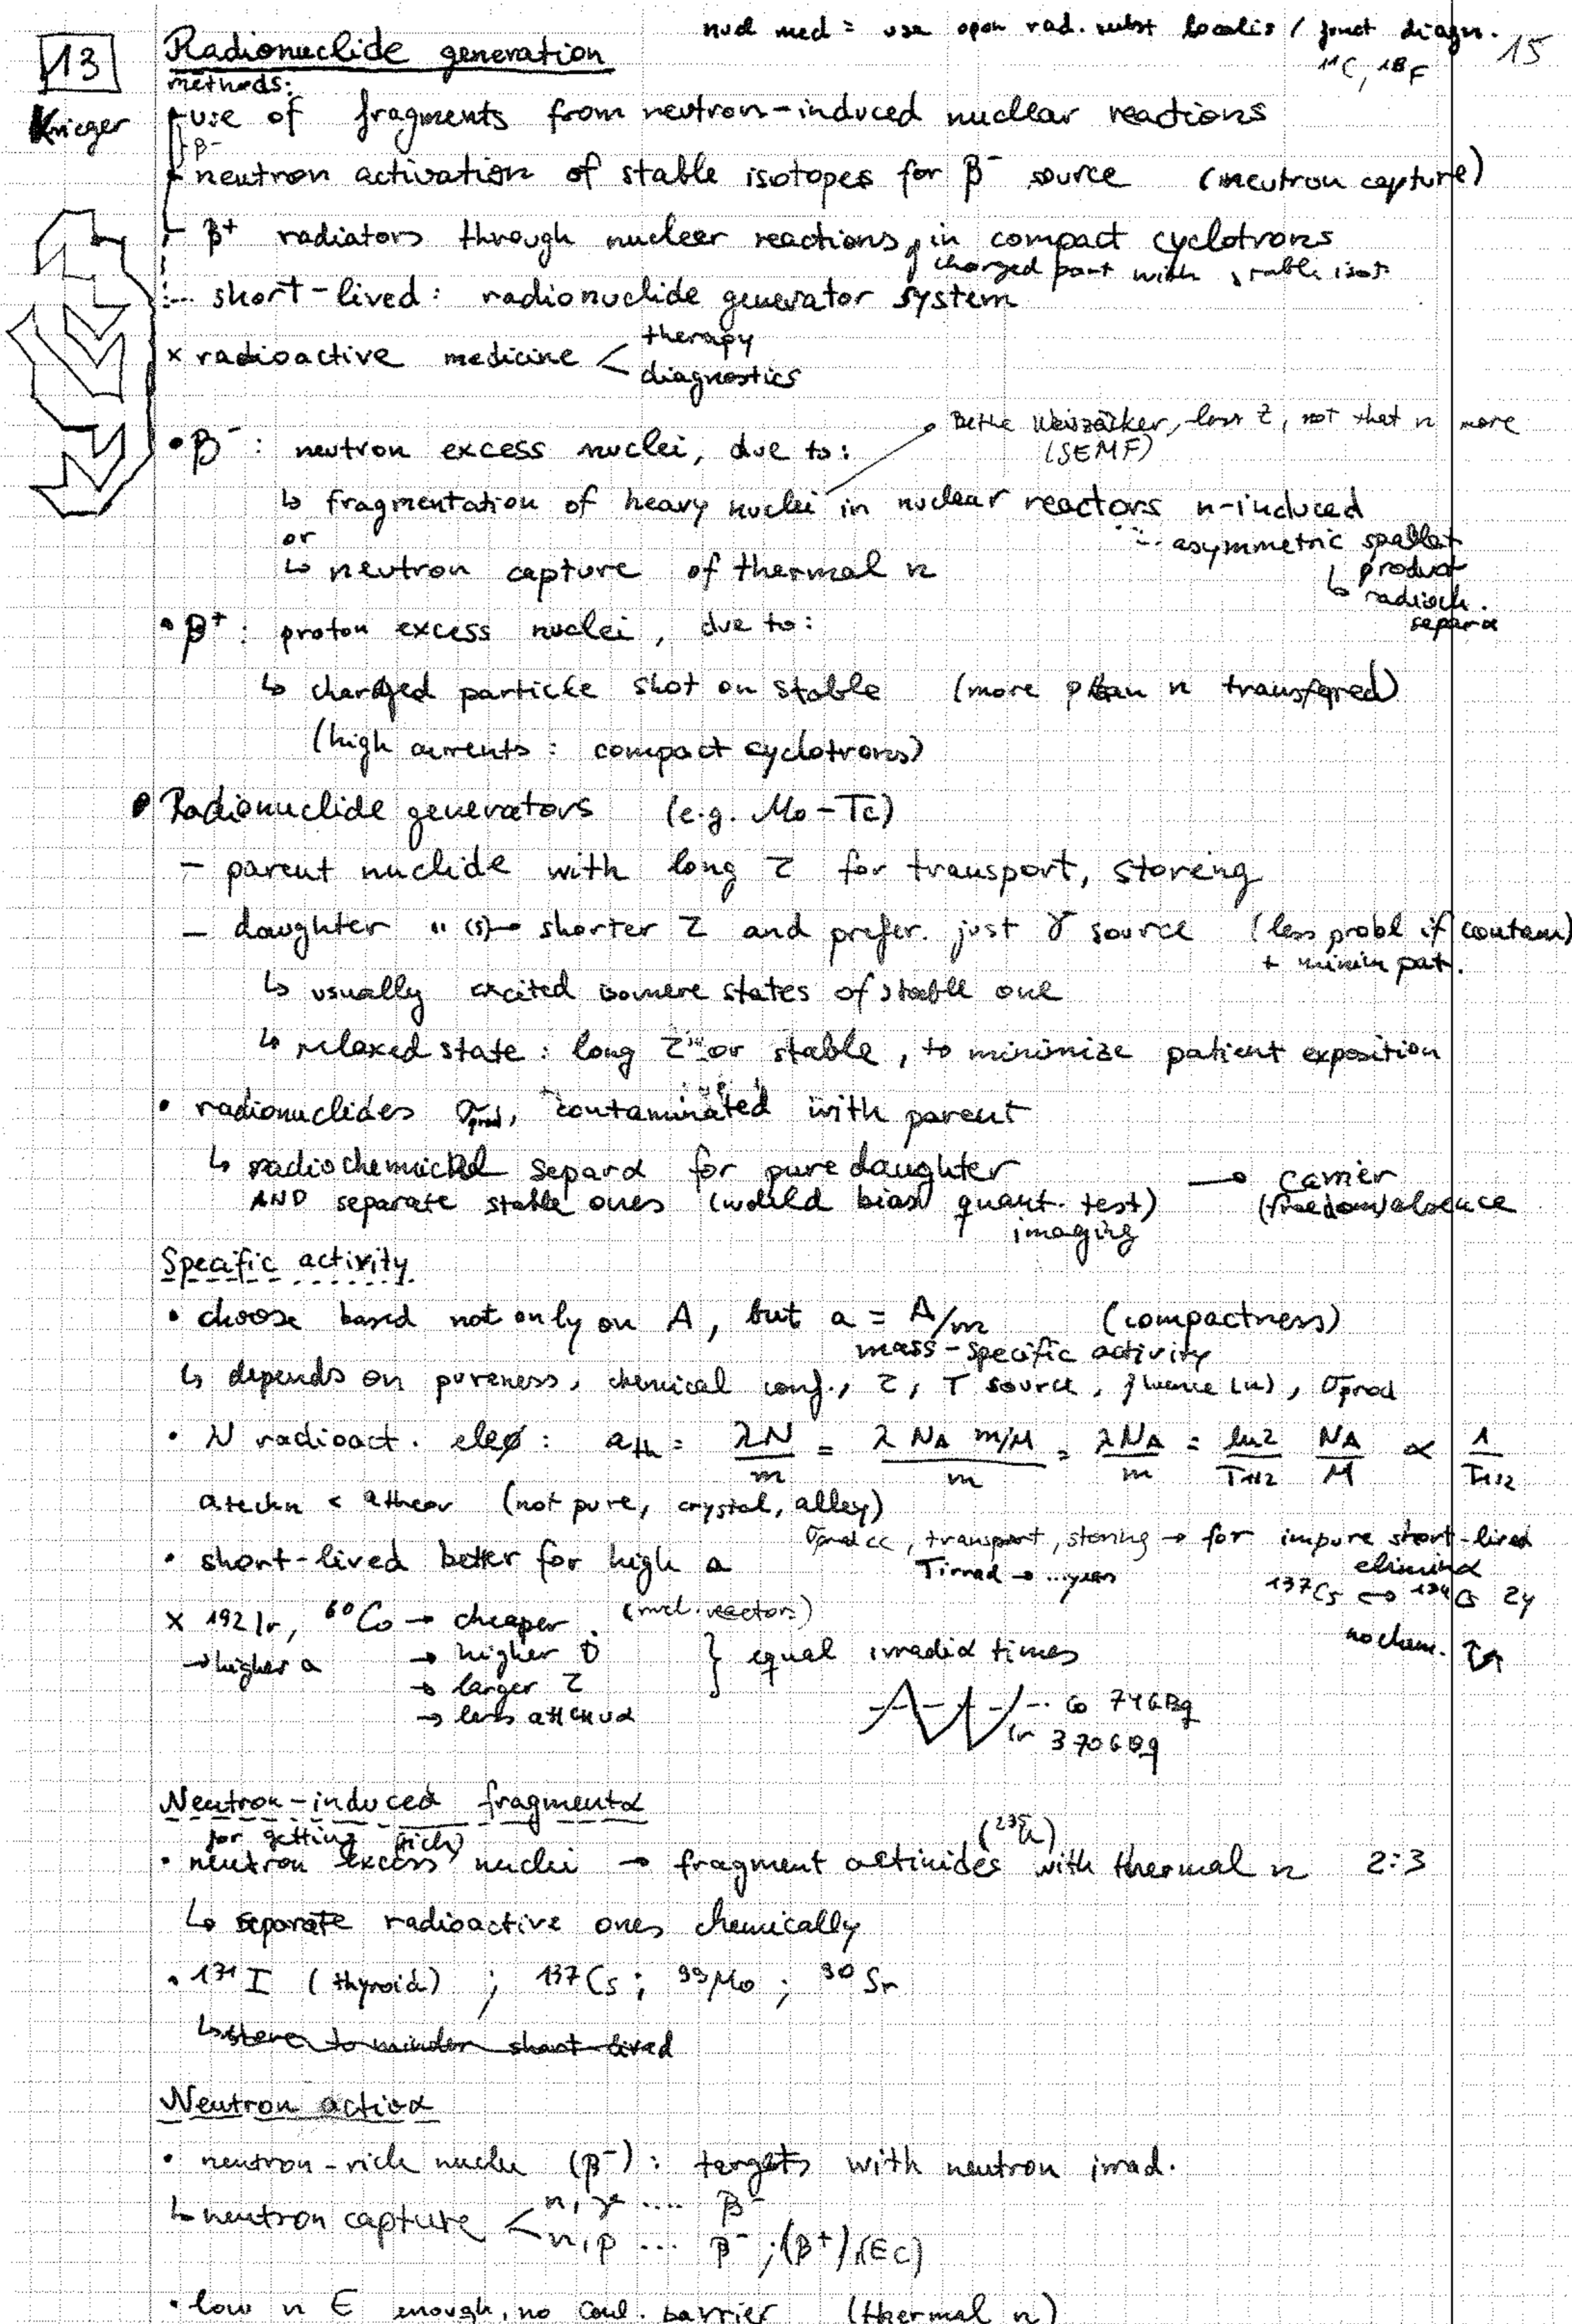 nucl med = use open rad. subst localis / funct diagn.
13
Radionuclide generation
¹¹C, ¹⁸F
15
methods:
Krieger
- use of fragments from neutron-induced nuclear reactions
β⁻
- neutron activation of stable isotopes for β⁻ source (neutron capture)
- β⁺ radiators through nuclear reactions, in compact cyclotrons
charged part with stable isot.
- short-lived: radionuclide generator system
x radioactive medicine < therapy
diagnostics
Bethe Weiszäcker, low Z, not that n more
(SEMF)
• β⁻: neutron excess nuclei, due to:
↳ fragmentation of heavy nuclei in nuclear reactors n-induced
or
∴ asymmetric spallat
product
↳ neutron capture of thermal n
↳ radioch.
separα
• β⁺: proton excess nuclei, due to:
↳ charged particle shot on stable (more p than n transferred)
(high currents: compact cyclotrons)
• Radionuclide generators (e.g. Mo-Tc)
- parent nuclide with long τ for transport, storing
- daughter " (s)→ shorter τ and prefer. just γ source (less probl if contam)
+ minim pat.
↳ usually excited isomere states of stable one
↳ relaxed state: long τ or stable, to minimize patient exposition
• radionuclides σprod, contaminated with parent
↳ radiochemical separα for pure daughter
→ carrier
AND separate stable ones (would bias quant. test)
(freedom) absence
imaging
Specific activity
• choose based not only on A, but a = A/m (compactness)
mass-specific activity
↳ depends on pureness, chemical conf., τ, T source, fluence (n), σprod
• N radioact. : a_th = λN/m = λ N_A m/M / m = λN_A/m = ln2/T_1/2 N_A/M ∝ 1/T_1/2
a techn < a theor (not pure, crystal, alloy)
σprod cc, transport, storing → for impure short-lived
eliminα
• short-lived better for high a
Tirrad → ...years
¹³⁷Cs ↔ ¹³⁴Cs 2y
no chem.
x 192 Ir, ⁶⁰Co → cheaper (nucl. reactors)
→ higher a
→ higher Ḋ
} equal irradiα times
→ larger τ
→ less attenuα
Co 74GBq
Ir 370GBq
Neutron-induced fragmentα
for getting (rich)
(²³⁵U)
• neutron excess nuclei → fragment actinides with thermal n 2:3
↳ separate radioactive ones chemically
• ¹³¹I (thyroid) ; ¹³⁷Cs ; ⁹⁹Mo ; ⁹⁰Sr
↳ store to short-lived
Neutron activα
• neutron-rich nuclei (β⁻): targets with neutron irrad.
↳ neutron capture < n,γ .... β⁻
n,p ... β⁻ ;(β⁺),(EC)
• low n E enough, no Coul. barrier (thermal n)